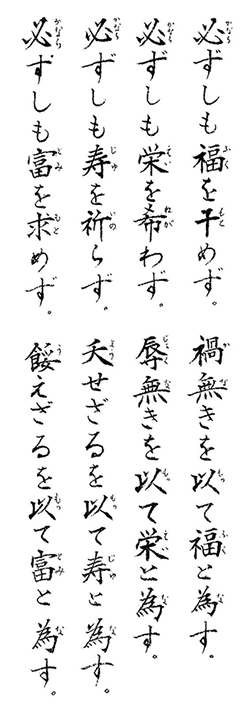 必ずしも福を干めず。
必ずしも栄を希わず。
必ずしも寿を祈らず。
必ずしも富を求めず。
禍無きを以て福と為す。
辱無きを以て栄と為す。
夭せざるを以て寿と為す。
餒えざるを以て富と為す。